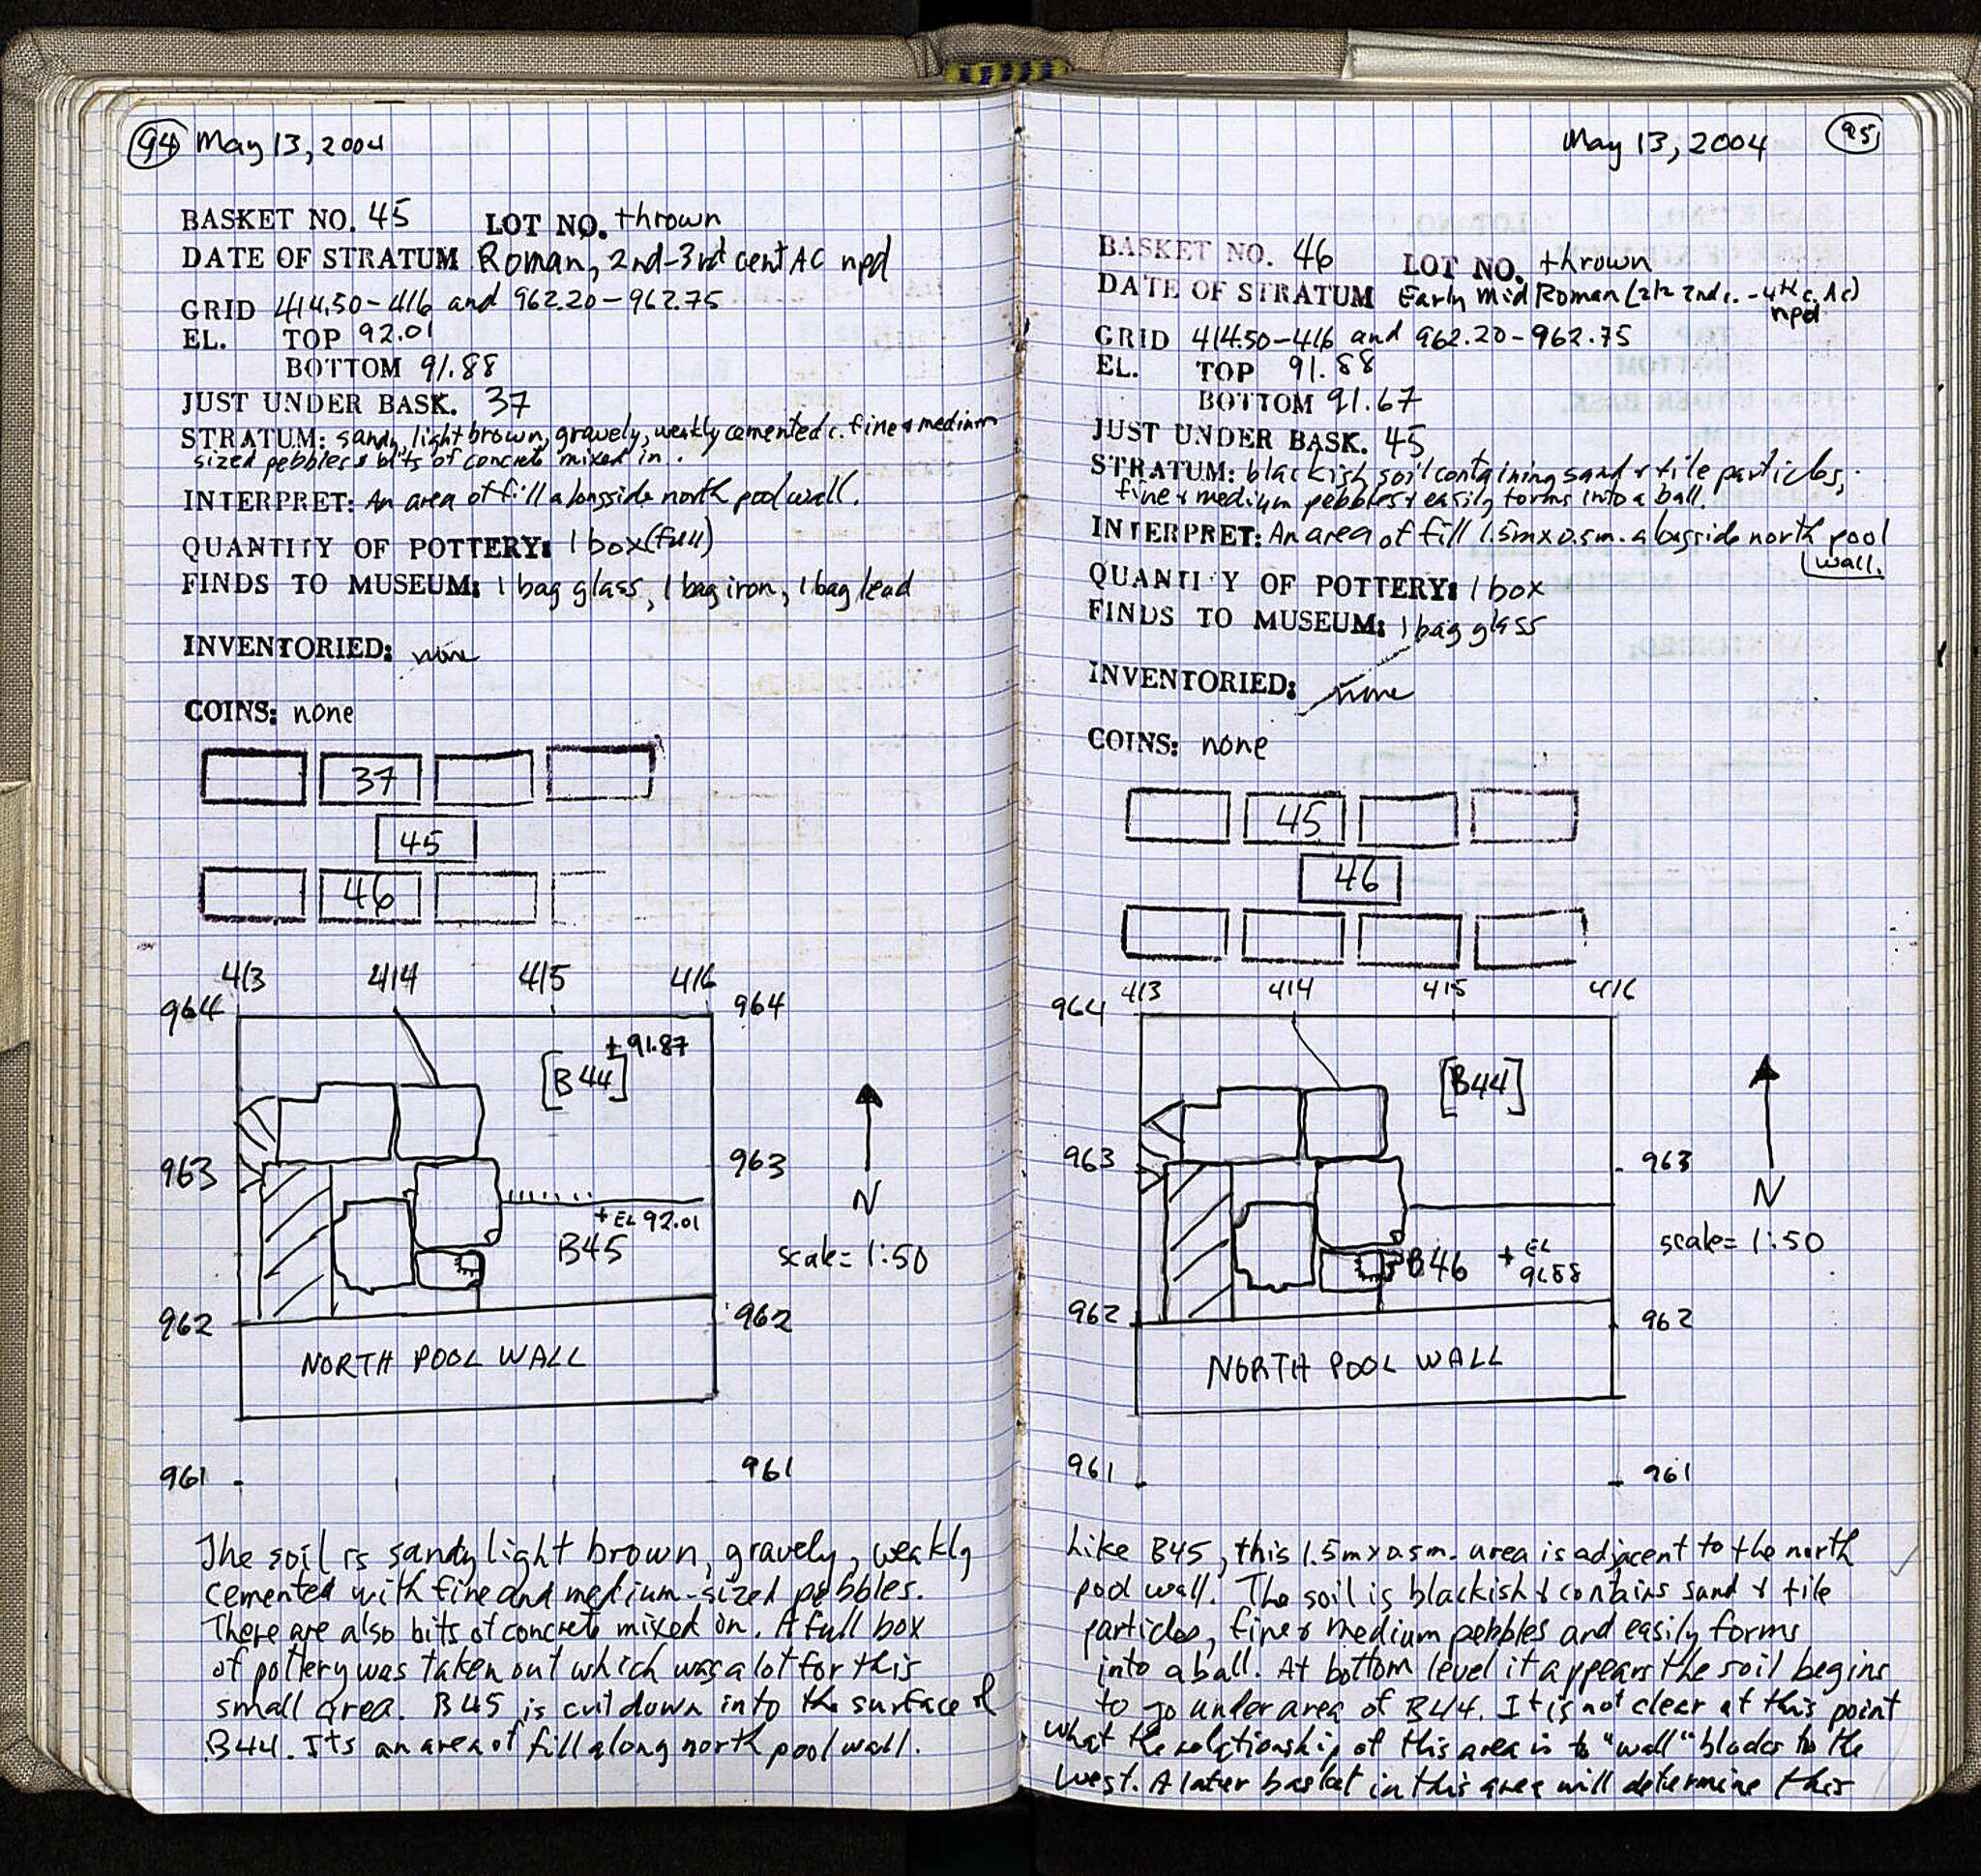 94 May 13, 2004
BASKET NO. 45 LOT NO. thrown
DATE OF STRATUM Roman, 2nd-3rd cent AC npd
GRID 414.50-416 and 962.20-962.75
EL. TOP 92.01
BOTTOM 91.88
JUST UNDER BASK. 37
STRATUM: sandy, light brown, gravely, weakly cemented c. fine & medium
sized pebbles & bits of concrete mixed in.
INTERPRET: An area of fill alongside north pool wall.
QUANTITY OF POTTERY: 1 box (full)
FINDS TO MUSEUM: 1 bag glass, 1 bag iron, 1 bag lead
INVENTORIED: none
COINS: none
37
45
46
413 414 415 416
964 964
+ 91.87
[B44]
963 963
+ EL 92.01
B45
N
scale = 1:50
962 962
NORTH POOL WALL
961 961
The soil is sandy light brown, gravely, weakly
cemented with fine and medium-sized pebbles.
There are also bits of concrete mixed in. A full box
of pottery was taken out which was a lot for this
small area. B45 is cut down into the surface of
B44. Its an area of fill along north pool wall.
May 13, 2004 95
BASKET NO. 46 LOT NO. thrown
DATE OF STRATUM Early Mid Roman (2nd c. - 4th c. AC)
npd
GRID 414.50-416 and 962.20-962.75
EL. TOP 91.88
BOTTOM 91.67
JUST UNDER BASK. 45
STRATUM: blackish soil containing sand & tile particles,
fine & medium pebbles & easily forms into a ball.
INTERPRET: An area of fill 1.5m x 0.5m. alongside north pool
wall.
QUANTITY OF POTTERY: 1 box
FINDS TO MUSEUM: 1 bag glass
INVENTORIED: none
COINS: none
45
46
413 414 415 416
964
[B44]
963 963
N
scale = 1:50
B46 + EL
91.88
962 962
NORTH POOL WALL
961 961
Like B45, this 1.5m x 0.5m. area is adjacent to the north
pool wall. The soil is blackish & contains sand & tile
particles, fine & medium pebbles and easily forms
into a ball. At bottom level it appears the soil begins
to go under area of B44. It is not clear at this point
what the relationship of this area is to "wall" blocks to the
west. A later basket in this area will determine this